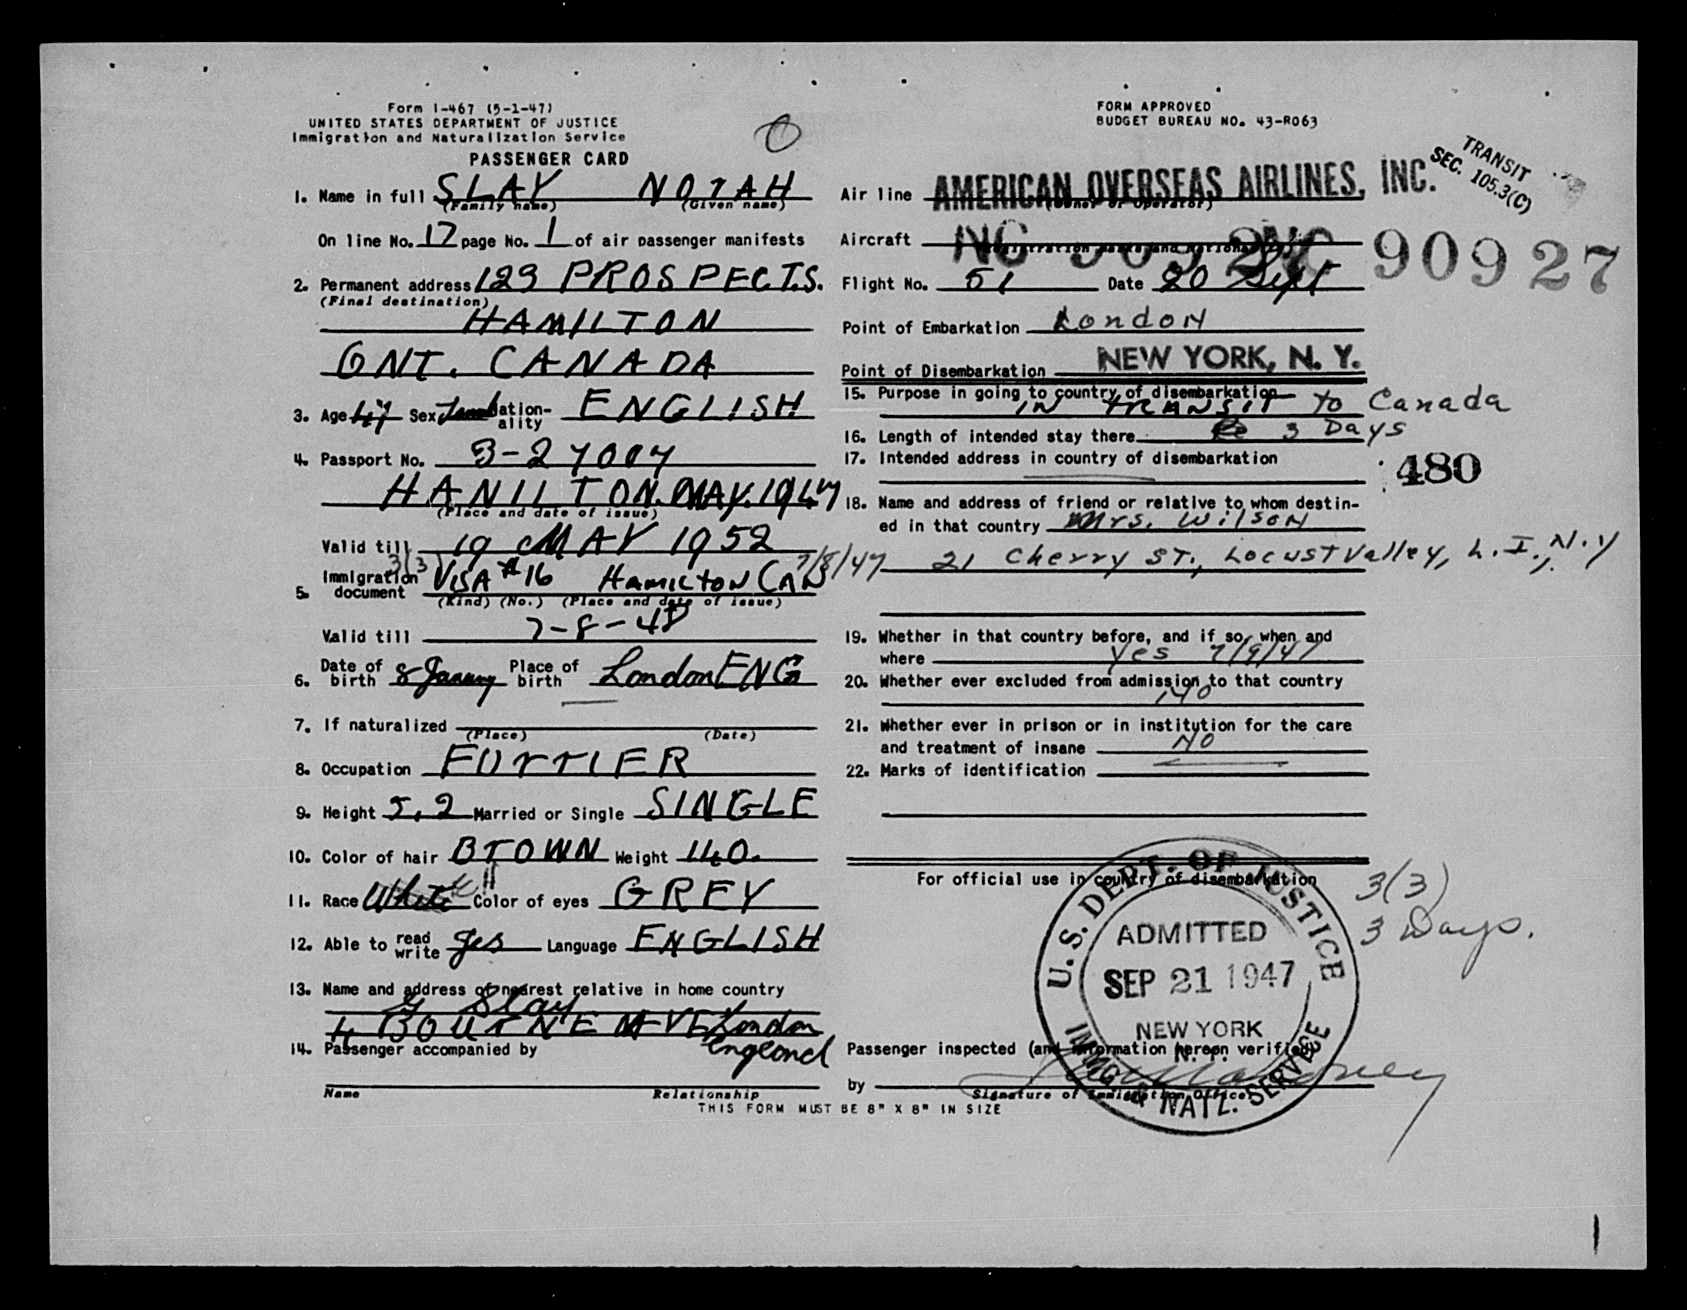 Form I-467 (5-1-47)
UNITED STATES DEPARTMENT OF JUSTICE
Immigration and Naturalization Service
PASSENGER CARD
FORM APPROVED
BUDGET BUREAU NO. 43-R063
TRANSIT
SEC. 105.3(C)
1. Name in full SLAY NORAH
(Family name) (Given name)
On line No. 17 page No. 1 of air passenger manifests
2. Permanent address 123 PROSPECT.S.
(Final destination)
HAMILTON
ONT. CANADA
3. Age 47 Sex Nation-ality ENGLISH
4. Passport No. 3-27007
HAMILTON. MAY. 1947
(Place and date of issue)
Valid till 19 MAY 1952
3(3)
5. Immigration document VISA #16 HAMILTON CAN 7/8/47
(Kind) (No.) (Place and date of issue)
Valid till 7-8-48
6. Date of birth 8 Place of birth London ENG
7. If naturalized
(Place) (Date)
8. Occupation FURRIER
9. Height 5,2 Married or Single SINGLE
10. Color of hair BROWN Weight 140.
11. Race White Color of eyes GREY
12. Able to read write yes Language ENGLISH
13. Name and address of nearest relative in home country
Slay
4 BOURNE AVE London
England
14. Passenger accompanied by
Name Relationship
THIS FORM MUST BE 8" X 8" IN SIZE
Air line AMERICAN OVERSEAS AIRLINES, INC.
(Owner or operator)
Aircraft NC 90927
Flight No. 51 Date 20 Sept
Point of Embarkation London
Point of Disembarkation NEW YORK, N. Y.
15. Purpose in going to country of disembarkation
IN TRANSIT to Canada
16. Length of intended stay there 3 Days
17. Intended address in country of disembarkation
480
18. Name and address of friend or relative to whom destin-
ed in that country Mrs. Wilson
21 Cherry ST., Locust Valley, L.I., N.Y
19. Whether in that country before, and if so, when and
where Yes 7/9/47
20. Whether ever excluded from admission to that country
NO
21. Whether ever in prison or in institution for the care
and treatment of insane NO
22. Marks of identification
For official use in country of disembarkation
3(3)
3 Days.
U.S. DEPT. OF JUSTICE
ADMITTED
SEP 21 1947
NEW YORK
N. Y.
IMMG. & NATZ. SERVICE
Passenger inspected (and information hereon verified)
by
Signature of Immigration Officer
1